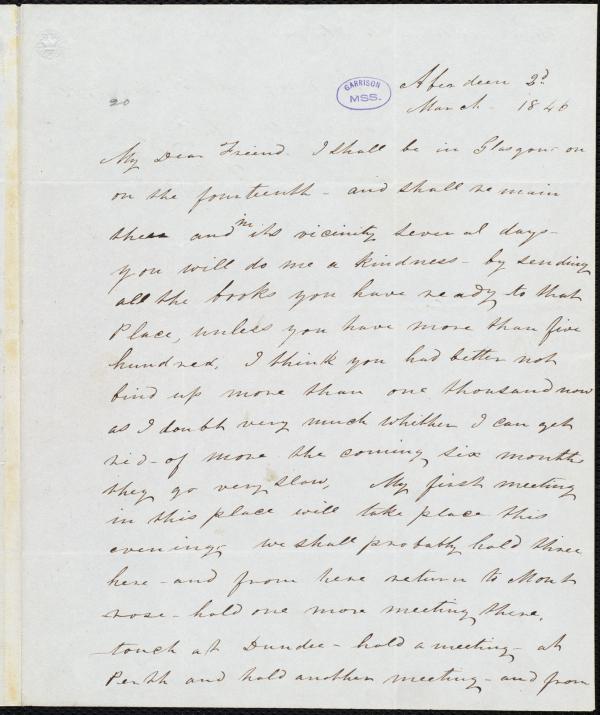 GARRISON
MSS.
20
Aberdeen 2d
March 1846
My Dear Friend. I shall be in Glasgow on
on the fourteenth - and shall remain
there and in its vicinity several days -
you will do me a kindness - by sending
all the books you have ready to that
Place, unless you have more than five
hundred. I think you had better not
bind up more than one thousand now
as I doubt very much whither I can get
rid - of more the coming six months
they go very slow. My first meeting
in this place will take place this
evening - we shall probably hold three
here - and from here return to Mont
rose - hold one more meeting there,
touch at Dundee - hold a meeting - at
Perth and hold another meeting - and from